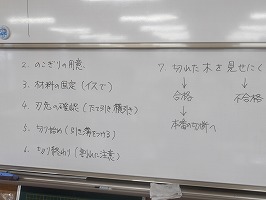 2. のこぎりの用意
3. 材料の固定(イスで)
4. 刃先の確認(たて引き横引き)
5. 切り始め(引き溝をつける)
6. 切り終わり(割れに注意)
7. 切れた木を見せにく
合格
不合格
本番の切断へ